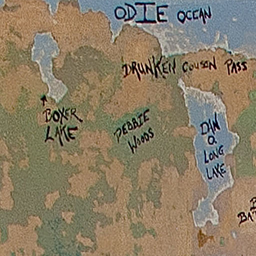 ODIE OCEAN
DRUNKEN COUSIN PASS
BOXER
LAKE
DEBBIE
WOODS
DAN
O.
LONG
LAKE